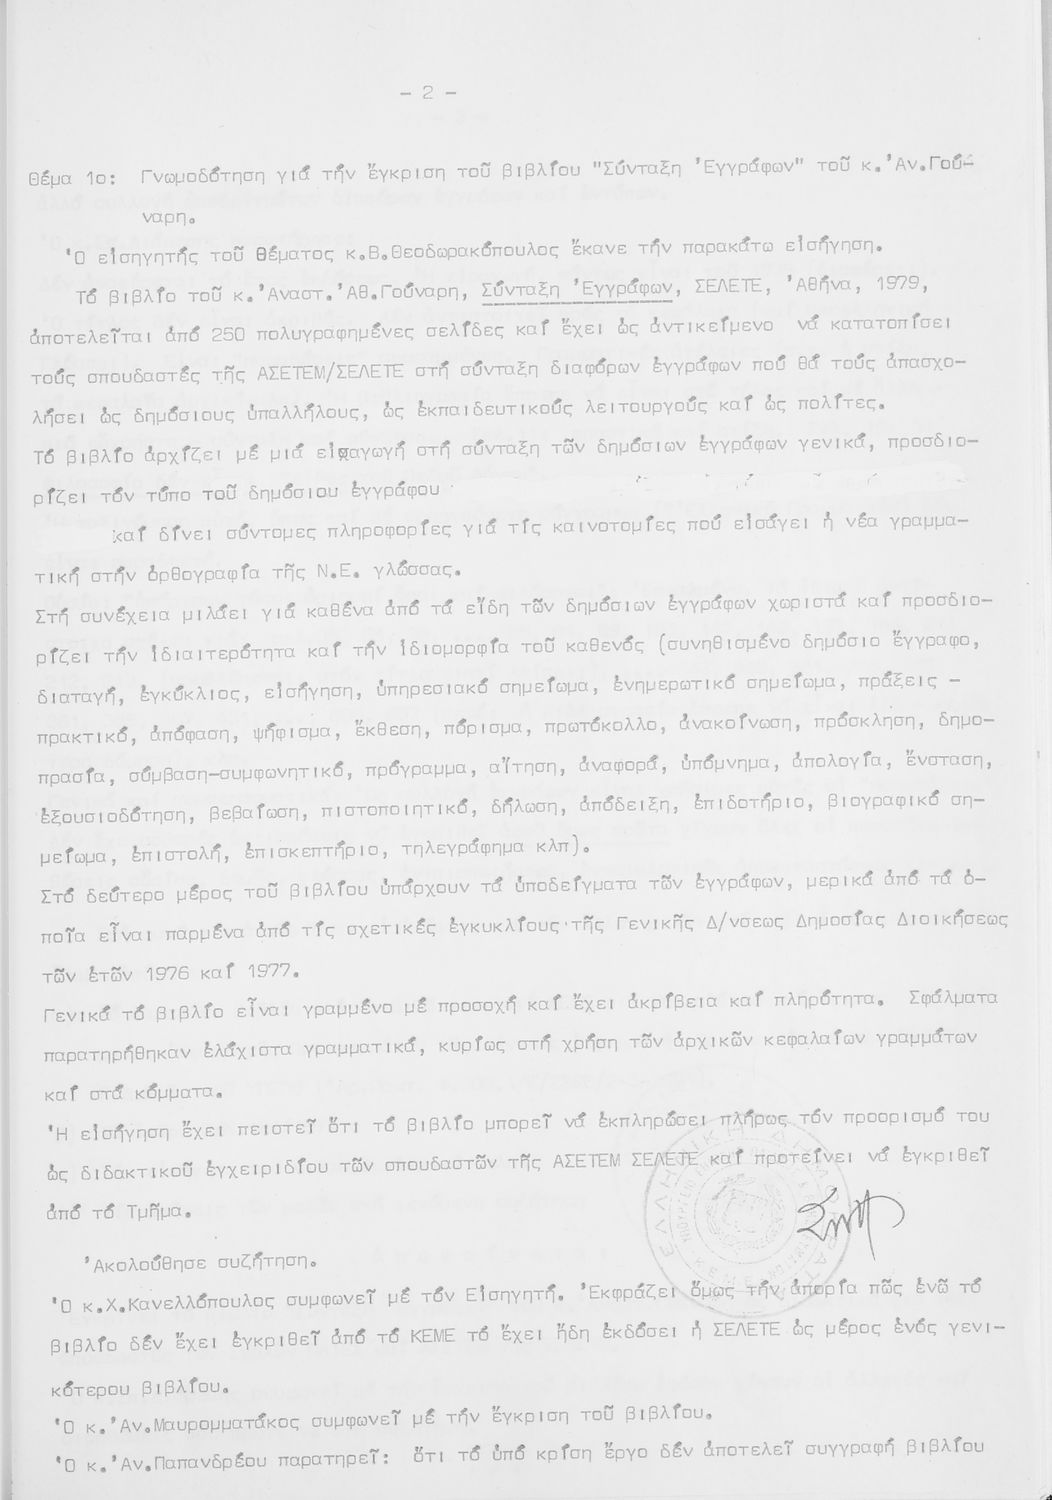 - 2 -
Θέμα 1ο: Γνωμοδότηση γιά τήν ἔγκριση τοῦ βιβλίου "Σύνταξη Ἐγγράφων" τοῦ κ.Ἀν.Γού-
ναρη.
Ὁ εἰσηγητής τοῦ θέματος κ.Β.Θεοδωρακόπουλος ἔκανε τήν παρακάτω εἰσήγηση.
Τό βιβλίο τοῦ κ.Ἀναστ.Ἀθ.Γούναρη, Σύνταξη Ἐγγράφων, ΣΕΛΕΤΕ, Ἀθήνα, 1979,
ἀποτελεῖται ἀπό 250 πολυγραφημένες σελίδες καί ἔχει ὡς ἀντικείμενο νά κατατοπίσει
τούς σπουδαστές τῆς ΑΣΕΤΕΜ/ΣΕΛΕΤΕ στή σύνταξη διαφόρων ἐγγράφων πού θά τούς ἀπασχο-
λήσει ὡς δημόσιους ὑπαλλήλους, ὡς ἐκπαιδευτικούς λειτουργούς καί ὡς πολίτες.
Τό βιβλίο ἀρχίζει μέ μιά εἰσαγωγή στή σύνταξη τῶν δημόσιων ἐγγράφων γενικά, προσδιο-
ρίζει τόν τύπο τοῦ δημόσιου ἐγγράφου
καί δίνει σύντομες πληροφορίες γιά τίς καινοτομίες πού εἰσάγει ἡ νέα γραμμα-
τική στήν ὀρθογραφία τῆς Ν.Ε. γλώσσας.
Στή συνέχεια μιλάει γιά καθένα ἀπό τά εἴδη τῶν δημόσιων ἐγγράφων χωριστά καί προσδιο-
ρίζει τήν ἰδιαιτερότητα καί τήν ἰδιομορφία τοῦ καθενός (συνηθισμένο δημόσιο ἔγγραφο,
διαταγή, ἐγκύκλιος, εἰσήγηση, ὑπηρεσιακό σημείωμα, ἐνημερωτικό σημείωμα, πράξεις -
πρακτικό, ἀπόφαση, ψήφισμα, ἔκθεση, πόρισμα, πρωτόκολλο, ἀνακοίνωση, πρόσκληση, δημο-
πρασία, σύμβαση-συμφωνητικό, πρόγραμμα, αἴτηση, ἀναφορά, ὑπόμνημα, ἀπολογία, ἔνσταση,
ἐξουσιοδότηση, βεβαίωση, πιστοποιητικό, δήλωση, ἀπόδειξη, ἐπιδοτήριο, βιογραφικό ση-
μείωμα, ἐπιστολή, ἐπισκεπτήριο, τηλεγράφημα κλπ).
Στό δεύτερο μέρος τοῦ βιβλίου ὑπάρχουν τά ὑποδείγματα τῶν ἐγγράφων, μερικά ἀπό τά ὁ-
ποῖα εἶναι παρμένα ἀπό τίς σχετικές ἐγκυκλίους τῆς Γενικῆς Δ/νσεως Δημοσίας Διοικήσεως
τῶν ἐτῶν 1976 καί 1977.
Γενικά τό βιβλίο εἶναι γραμμένο μέ προσοχή καί ἔχει ἀκρίβεια καί πληρότητα. Σφάλματα
παρατηρήθηκαν ἐλάχιστα γραμματικά, κυρίως στή χρήση τῶν ἀρχικῶν κεφαλαίων γραμμάτων
καί στά κόμματα.
Ἡ εἰσήγηση ἔχει πειστεῖ ὅτι τό βιβλίο μπορεῖ νά ἐκπληρώσει πλήρως τόν προορισμό του
ὡς διδακτικοῦ ἐγχειριδίου τῶν σπουδαστῶν τῆς ΑΣΕΤΕΜ ΣΕΛΕΤΕ καί προτείνει νά ἐγκριθεῖ
ἀπό τό Τμῆμα.
Ἀκολούθησε συζήτηση.
Ὁ κ.Χ.Κανελλόπουλος συμφωνεῖ μέ τόν Εἰσηγητή. Ἐκφράζει ὅμως τήν ἀπορία πῶς ἐνῶ τό
βιβλίο δέν ἔχει ἐγκριθεῖ ἀπό τό ΚΕΜΕ τό ἔχει ἤδη ἐκδόσει ἡ ΣΕΛΕΤΕ ὡς μέρος ἑνός γενι-
κότερου βιβλίου.
Ὁ κ.Ἀν.Μαυρομματάκος συμφωνεῖ μέ τήν ἔγκριση τοῦ βιβλίου.
Ὁ κ.Ἀν.Παπανδρέου παρατηρεῖ: ὅτι τό ὑπό κρίση ἔργο δέν ἀποτελεῖ συγγραφή βιβλίου